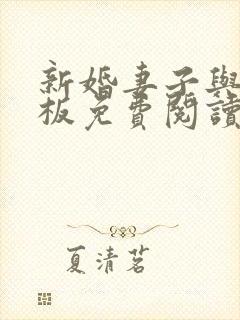 新婚妻子與
板免費閱讀
夏清茗